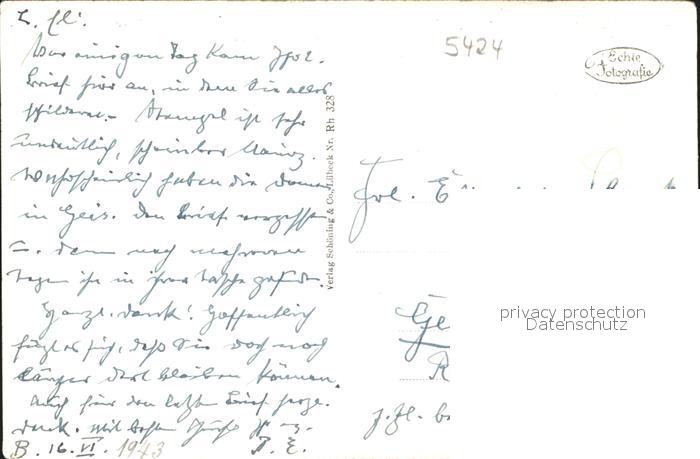 L. El.!
Vor einigen Tag kam Ihr l.
Brief hier an, in dem Sie alles
schildern. - Stempel ist sehr
undeutlich, scheinbar Mainz.
Wahrscheinlich haben die Damen
in Geis. den Brief vergessen
u. dann nach mehreren
Tagen ihn in ihrer Tasche gefunden.
Herzl. Dank! Hoffentlich
fügt es sich, daß Sie doch noch
länger dort bleiben können.
Auch für den letzten Brief herzl.
Dank. Mit besten Grüßen
B. 16. VI. 1943 P. E.
Verlag Schöning & Co., Lübeck Nr. Rh 328
5424
Echte Fotografie
Frl. E
Ge
R
z. Zt. b
privacy protection
Datenschutz